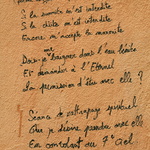 Si la manne m'est interdite
Si la dite m'est interdite
Encore m'accepte la marmite
Dois-je baigner dans l'eau bénite
Et demander à l'Eternel
La permission d'être avec elle ?
Séance de rattrapage spirituel
Que je désire prendre avec elle
En controlant au 7e ciel